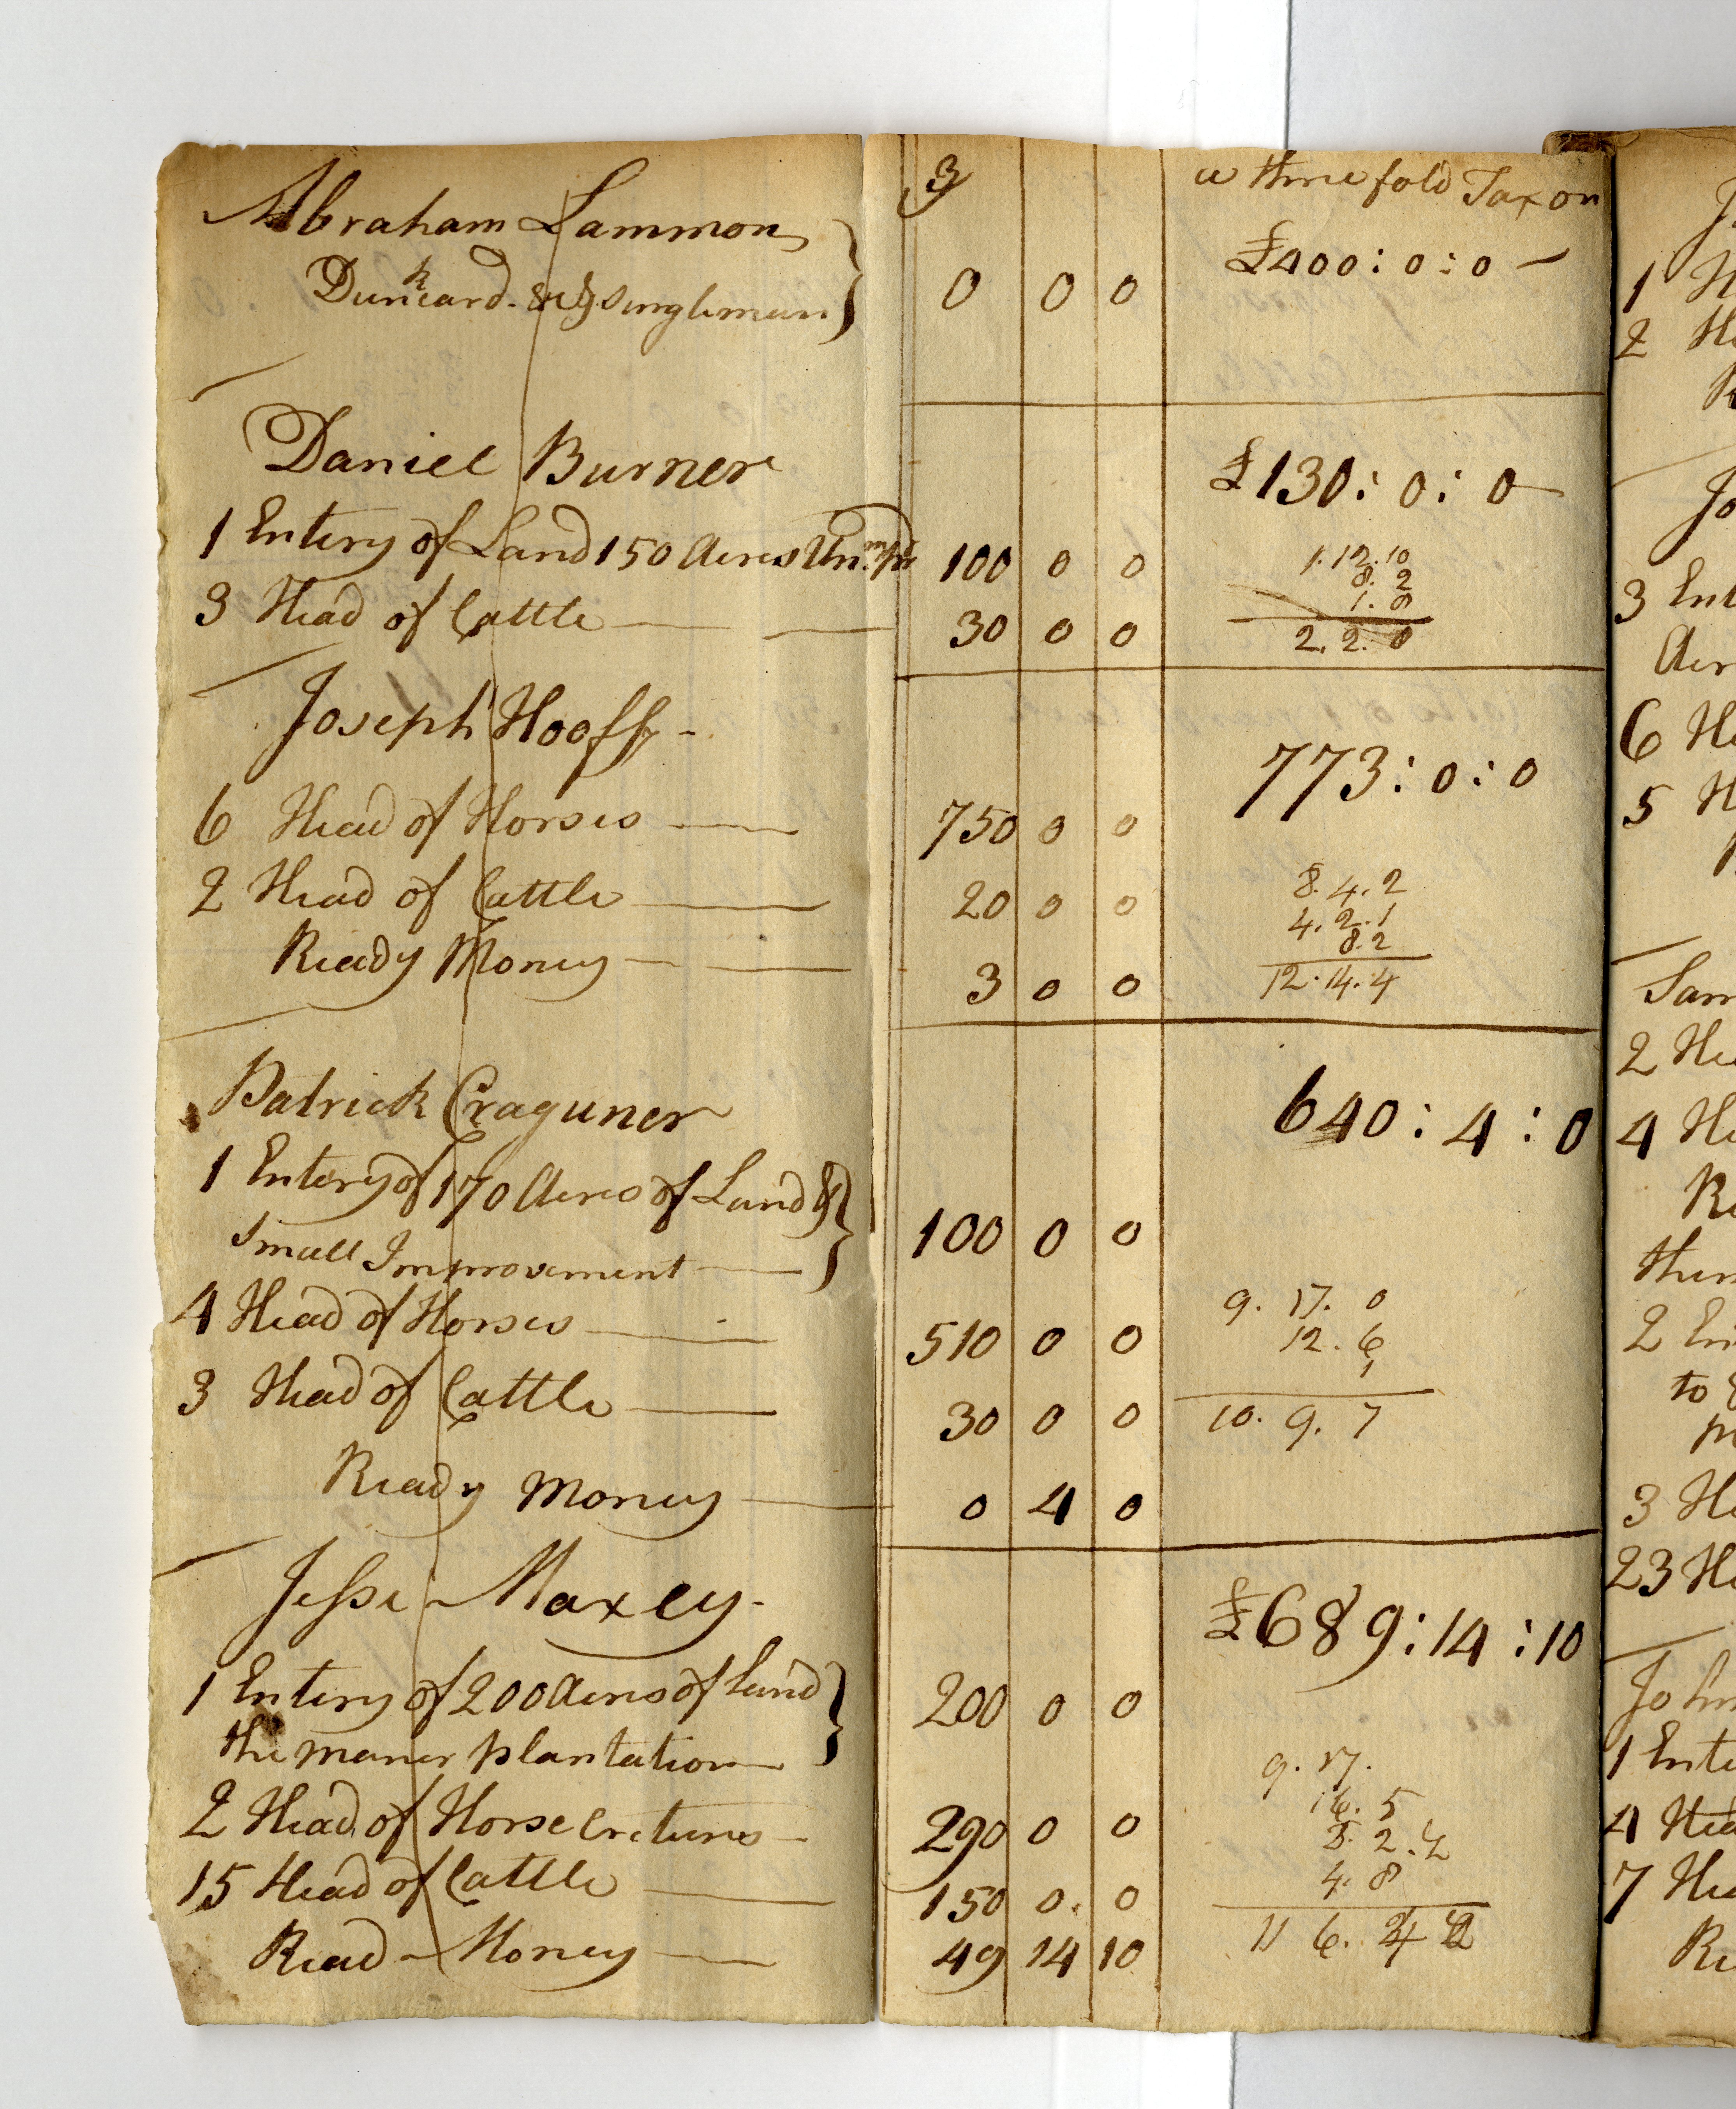 3
a three fold Tax on
Abraham Lammon
Dunkard & Singleman
0 0 0
£400:0:0
Daniel Burner
£130:0:0
1 Entery of Land 150 Acres Unimpr 100 0 0
1.12.10
8.2
1.8
3 Head of Cattle 30 0 0
2.2.0
Joseph Hooff
773:0:0
6 Head of Horses 750 0 0
2 Head of Cattle 20 0 0
8.4.2
4.2.1
8.2
Ready Money 3 0 0
12.14.4
Patrick Craguner
640:4:0
1 Entery of 170 Acres of Land &
Small Improvement 100 0 0
4 Head of Horses 510 0 0
9.17.0
12.6
1
3 Head of Cattle 30 0 0
10.9.7
Ready Money 0 4 0
Jesse Maxey
£689:14:10
1 Entery of 200 Acres of Land
the maner plantation 200 0 0
2 Head of Horse Cretures 290 0 0
9.17.
16.5
8.2.2
4.8
15 Head of Cattle 150 0 0
11 6.
Read Money 49 14 10
1 H
2 He
Jo
3 Ent
Acr
6 He
5 H
Sam
2 He
4 He
Re
then
2 En
to
3 He
23 He
John
1 Ente
4 Hea
7 Hea
Re